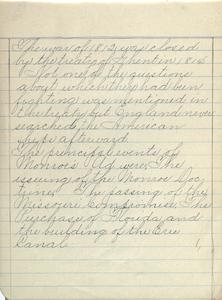 The war of 1812 was closed
by the treaty of Ghent in 1814
Not one of the questions
about which they had been
fighting was mentioned in
the treaty but England never
searched the American
ships afterward.
The principal events of
Monroe's Ad were, The
issuing of the Monroe Doc
trine, The passing of the
Missouri Compromise, The
Purchase of Florida, and
the building of the Erie
Canal.